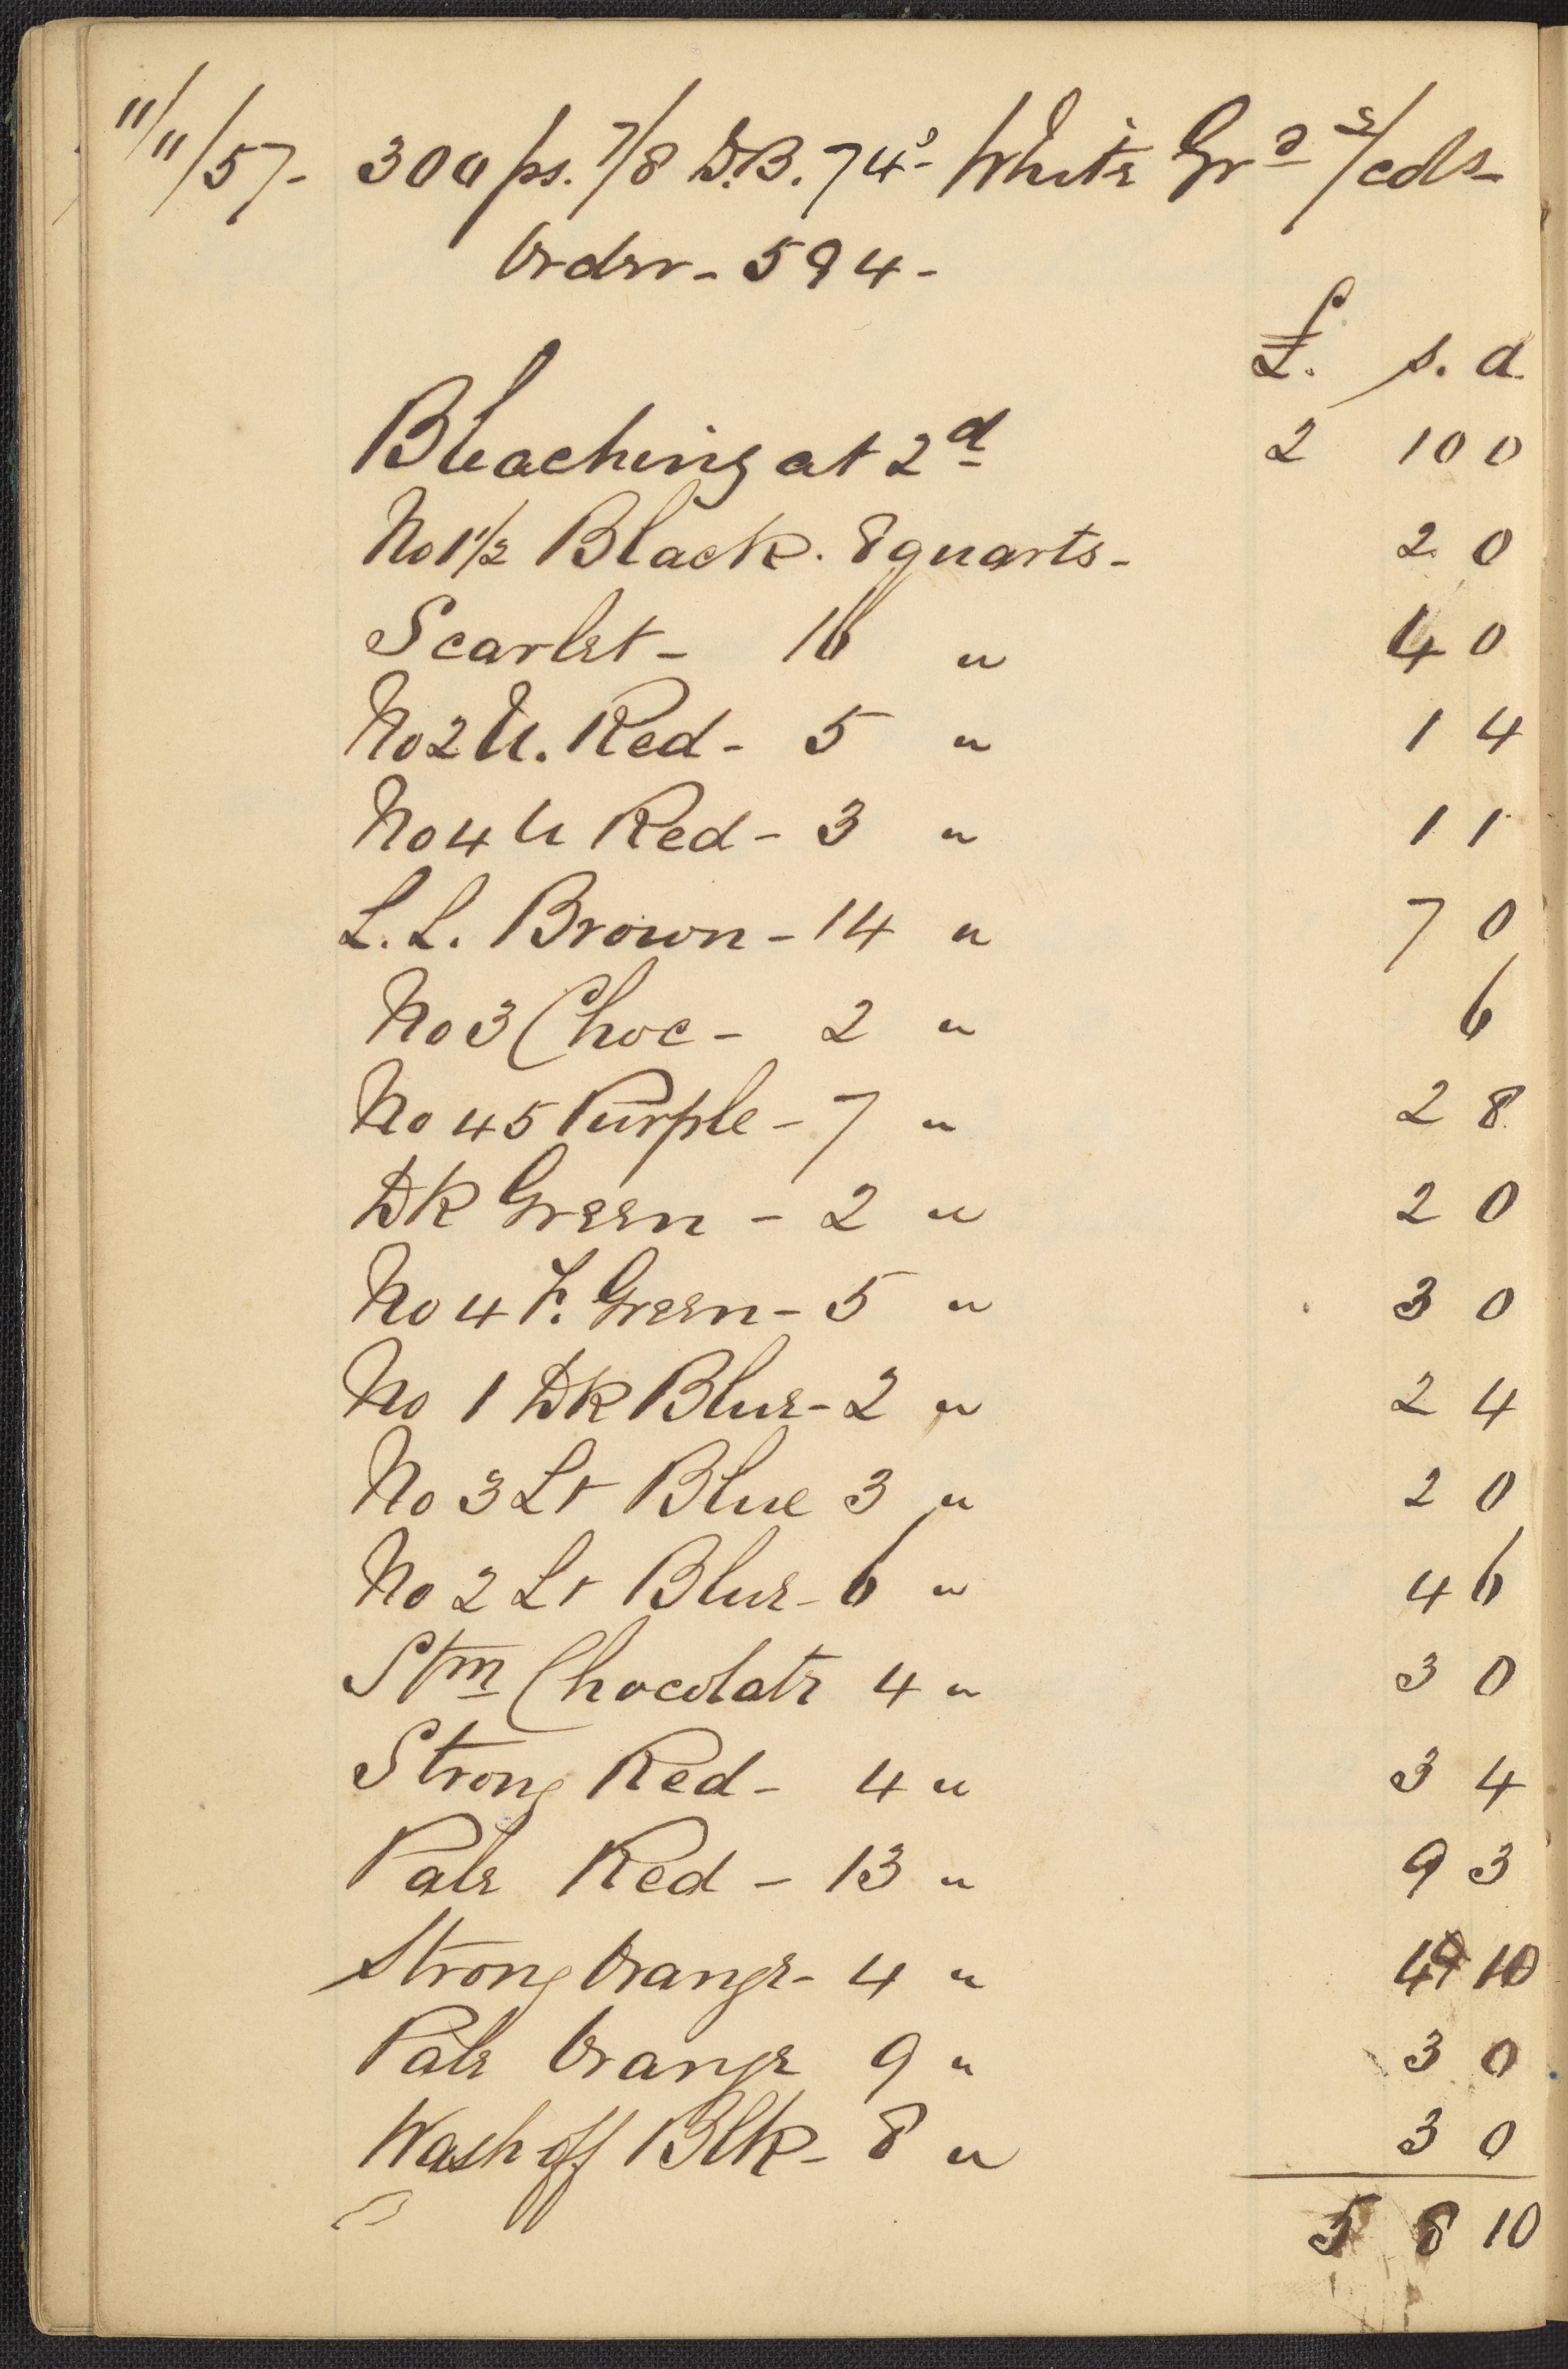 11/11/57- 300 ps. 7/8 D.B. 74s- White Grd 5/cols-
Order - 594 -
£. s. d
Bleaching at 2d 2 10 0
No 1 1/2 Black. 8 quarts - 2 0
Scarlet - 16 " 4 0
No 2 U. Red - 5 " 1 4
No 4 U Red - 3 " 1 1
L. L. Brown - 14 " 7 0
No 3 Choc - 2 " 6
No 45 Purple - 7 " 2 8
Dk Green - 2 " 2 0
No 4 F. Green - 5 " 3 0
No 1 Dk Blue - 2 " 2 4
No 3 Lt Blue 3 " 2 0
No 2 Lt Blue - 6 " 4 6
Stm Chocolate 4 " 3 0
Strong Red - 4 " 3 4
Pale Red - 13 " 9 3
Strong Orange - 4 " 4 10
Pale Orange 9 " 3 0
Wash off Blk - 8 " 3 0
5 8 10